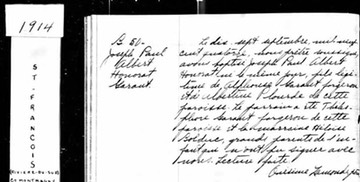 1914
ST-FRANCOIS
B. 56-
Joseph Paul
Albert
Honorat
Garant.
Le dix-sept septembre, mil neuf
cent quatorze, nous, prêtre soussigné,
avons baptisé Joseph Paul Albert
Honorat né le même jour, fils légi
time de Alphonse Garant forgeron
et de Albertine de cette
paroisse. Le parrain a été Théles-
phore Garant forgeron de cette
paroisse et la marraine Héloise
Bolduc, grands parents de l'en-
fant qui n'ont pu signer avec
nous. Lecture faite.